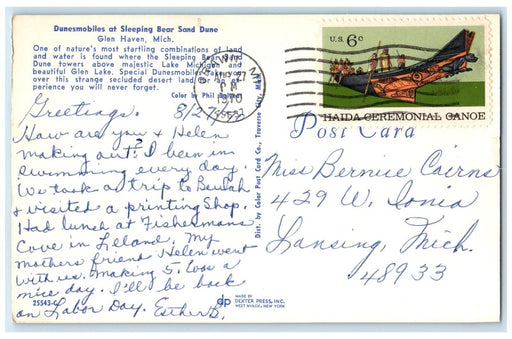 Dunesmobiles at Sleeping Bear Sand Dune
Glen Haven, Mich.
One of nature's most startling combinations of land
and water is found where the Sleeping Bear Sand
Dune towers above majestic Lake Michigan and
beautiful Glen Lake. Special Dunesmobiles take you
over this strange secluded desert land for an ex-
perience you will never forget.
Color by Phil
U.S. 6c
HAIDA CEREMONIAL CANOE
AUG 27
PM
1970
Post Card
Greetings. 8/27
How are you & Helen
making out? I been in
swimming every day.
We took a trip to Beulah
& visited a printing shop.
Had lunch at Fishermans
Cove in Leland. My
mothers friend Helen went
with us. making 5. Was a
nice day. I'll be back
on Labor Day. Esther B.
25543-C
Dist. by Color Post Card Co., Traverse City, Mich.
dp
MADE BY
DEXTER PRESS, INC.
WEST NYACK, NEW YORK
Miss Bernice Cairns
429 W. Ionia
Lansing, Mich.
48933